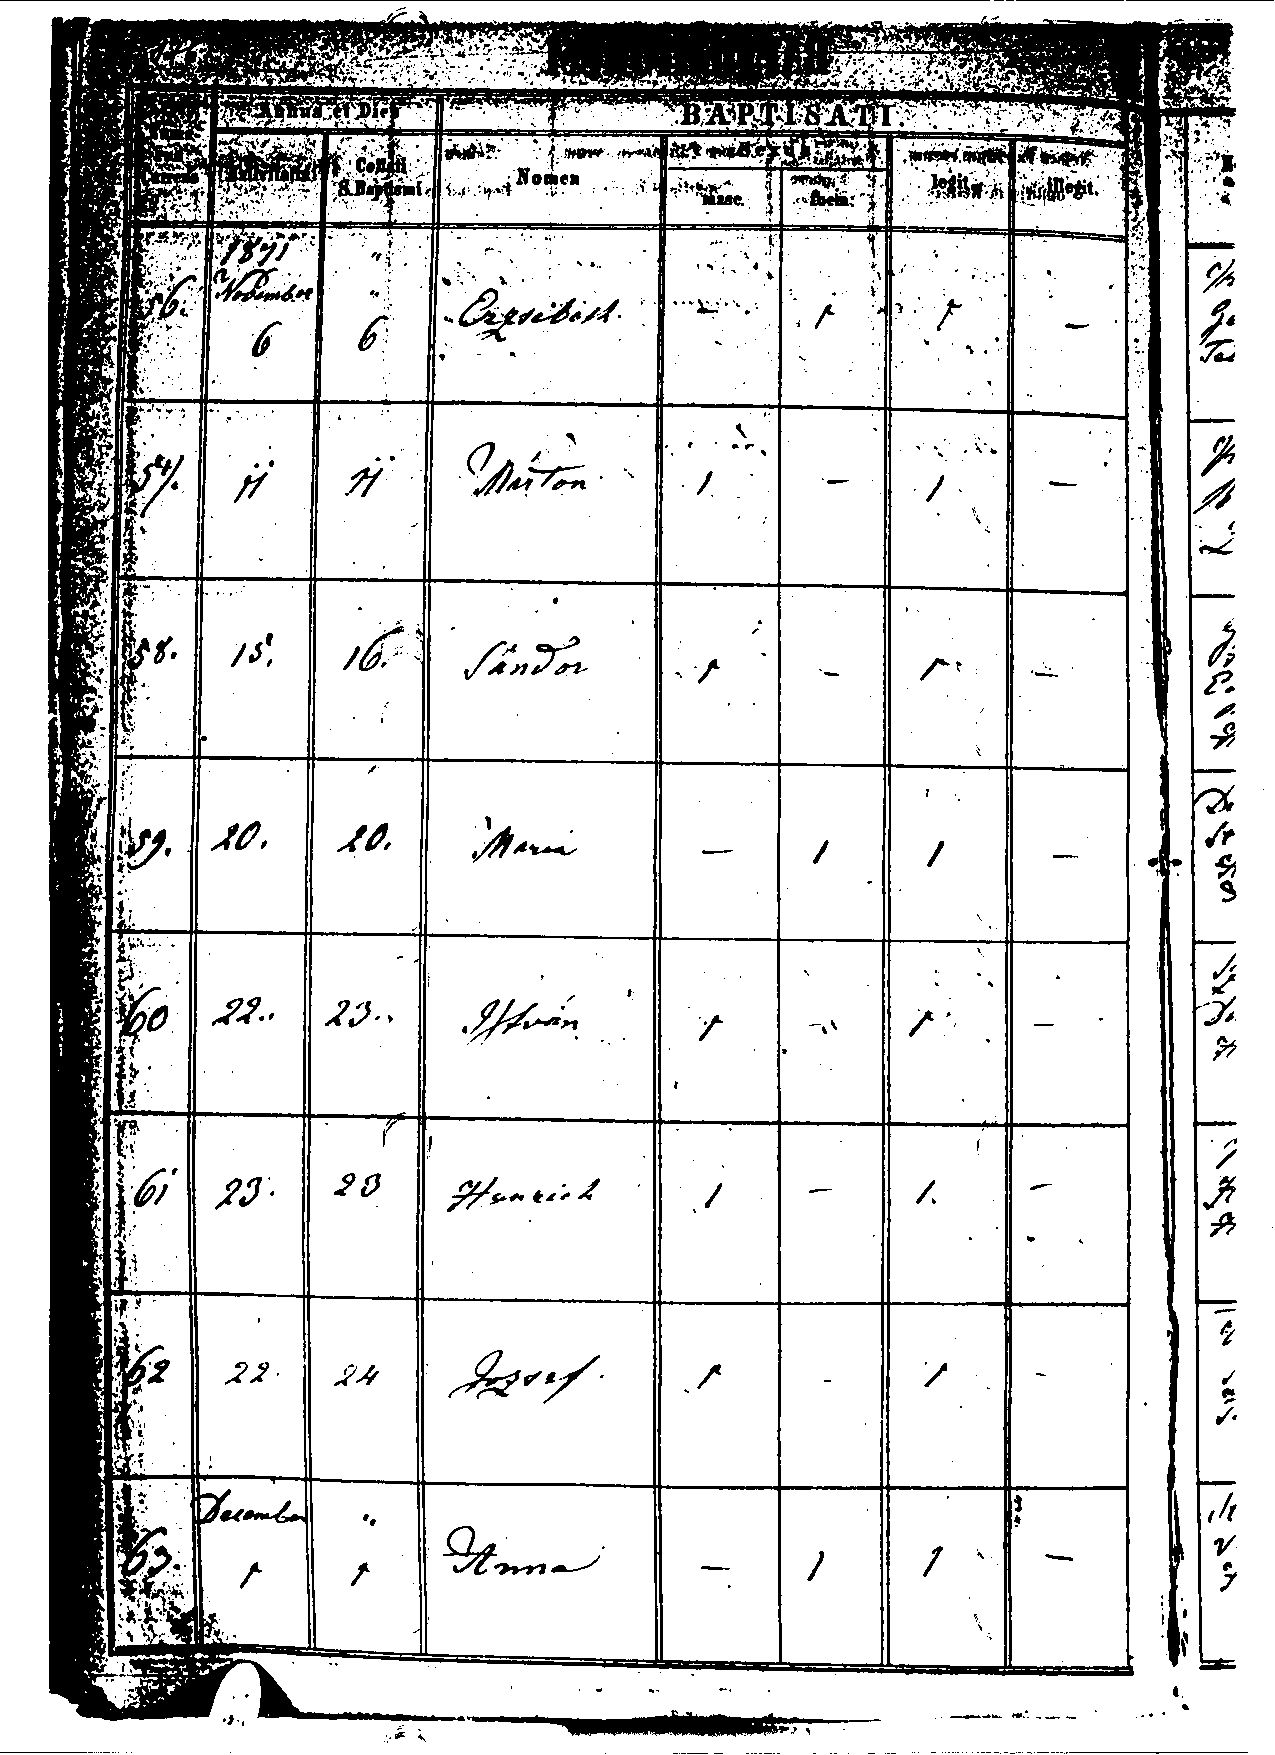 Annus et Dies
BAPTISATI.
Nativitatis
Collati
S. Baptismi
Nomen
Sexus
masc.
foem.
legit.
illegit.
56. 1871 November 6 " " 6 Erzsébeth. — 1 1 —
57. 11 11 Márton 1 — 1 —
58. 15. 16. Sándor 1 — 1 —
59. 20. 20. Maria — 1 1 —
60 22. 23. István 1 — 1 —
61 23. 23 Henrich 1 — 1. —
62 22. 24 Jozsef. 1 - 1 -
63. December 1 " 1 Anna — 1 1 —